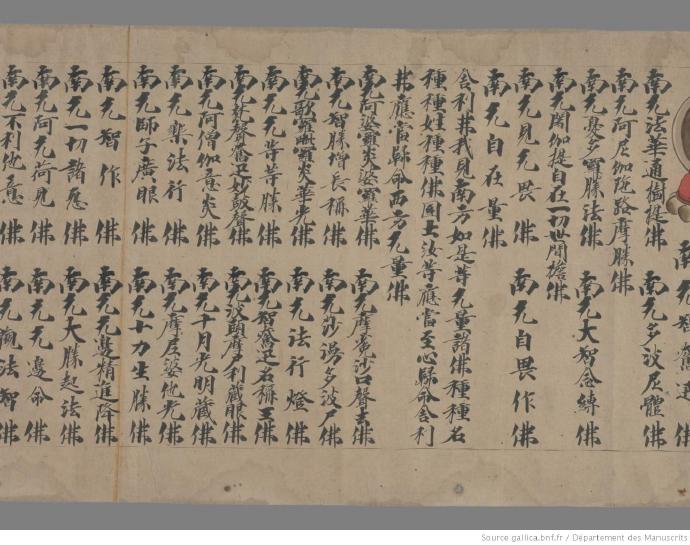 南无智奮迅佛
南无法華通樹提佛　南无多波尼體佛
南无阿尼伽陀路摩勝佛
南无憂多羅勝法佛　南无大智念縛佛
南无開伽提自在一切世間擔佛
南无見无畏佛　南无自畏作佛
南无自在量佛
舍利弗我見南方如是等无量諸佛種種名
種種姓種種佛國土汝等應當至心歸命舍利
弗應當歸命西方无量佛
南无阿婆羅炎婆羅華佛　南无摩沙口聲去佛
南无智勝增長稱佛　南无沙湯多波尸佛
南无歌羅毗羅炎華光佛　南无法行燈佛
南无无等等勝佛　南无智奮迅名稱王佛
南无梵聲奮迅妙鼓聲佛　南无波頭摩尸利藏眼佛
南无阿僧伽意炎佛　南无千月光明藏佛
南无樂法行佛　南无摩尼婆他光佛
南无師子廣眼佛　南无十力生勝佛
南无智作佛　南无无邊精進降佛
南无一切諸怨佛　南无大勝起法佛
南无阿无荷見佛　南无无邊命佛
南无不利他意佛　南无觀法智佛
Source gallica.bnf.fr / Département des Manuscrits